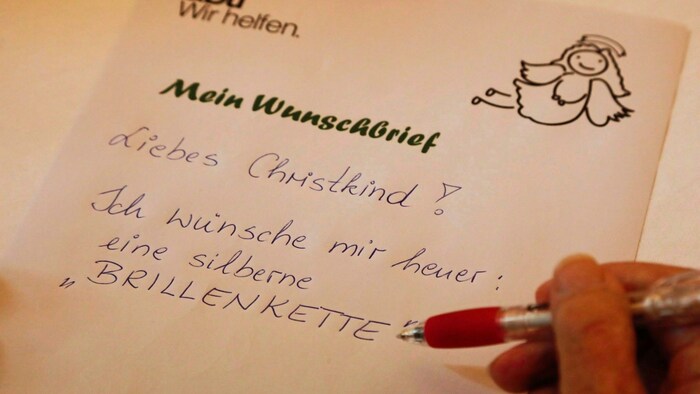 Wir helfen.
Mein Wunschbrief
Liebes Christkind!
Ich wünsche mir heuer:
eine silberne
„BRILLENKETTE"